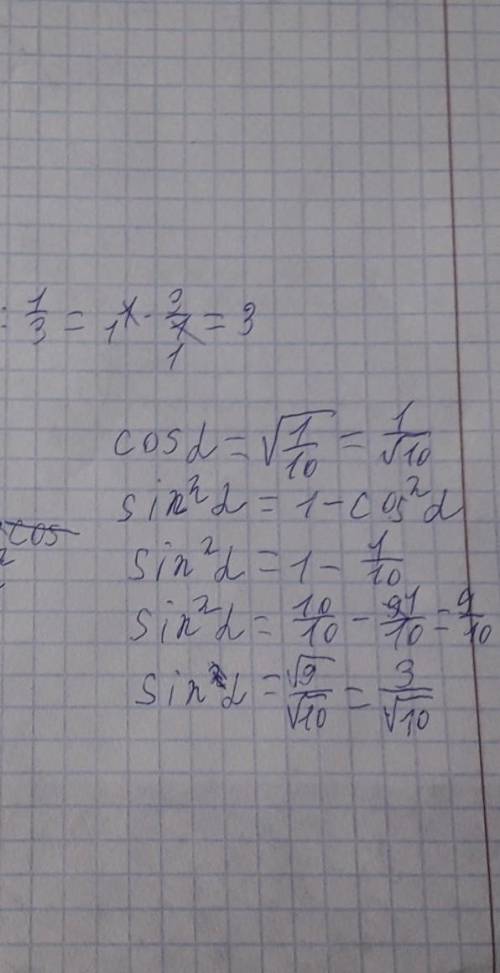 : 1/3 = 1 · 3/1 = 3
cos α = √(1/10) = 1/√10
sin² α = 1 - cos² α
cos
sin² α = 1 - 1/10
sin² α = 10/10 - 1/10 = 9/10
sin α = √9/√10 = 3/√10